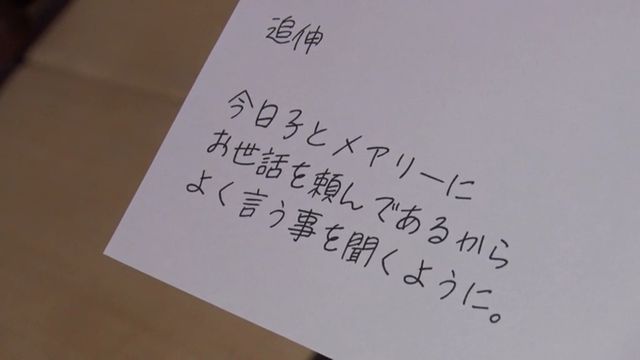 追伸
今日子とメアリーに
お世話を頼んであるから
よく言う事を聞くように。